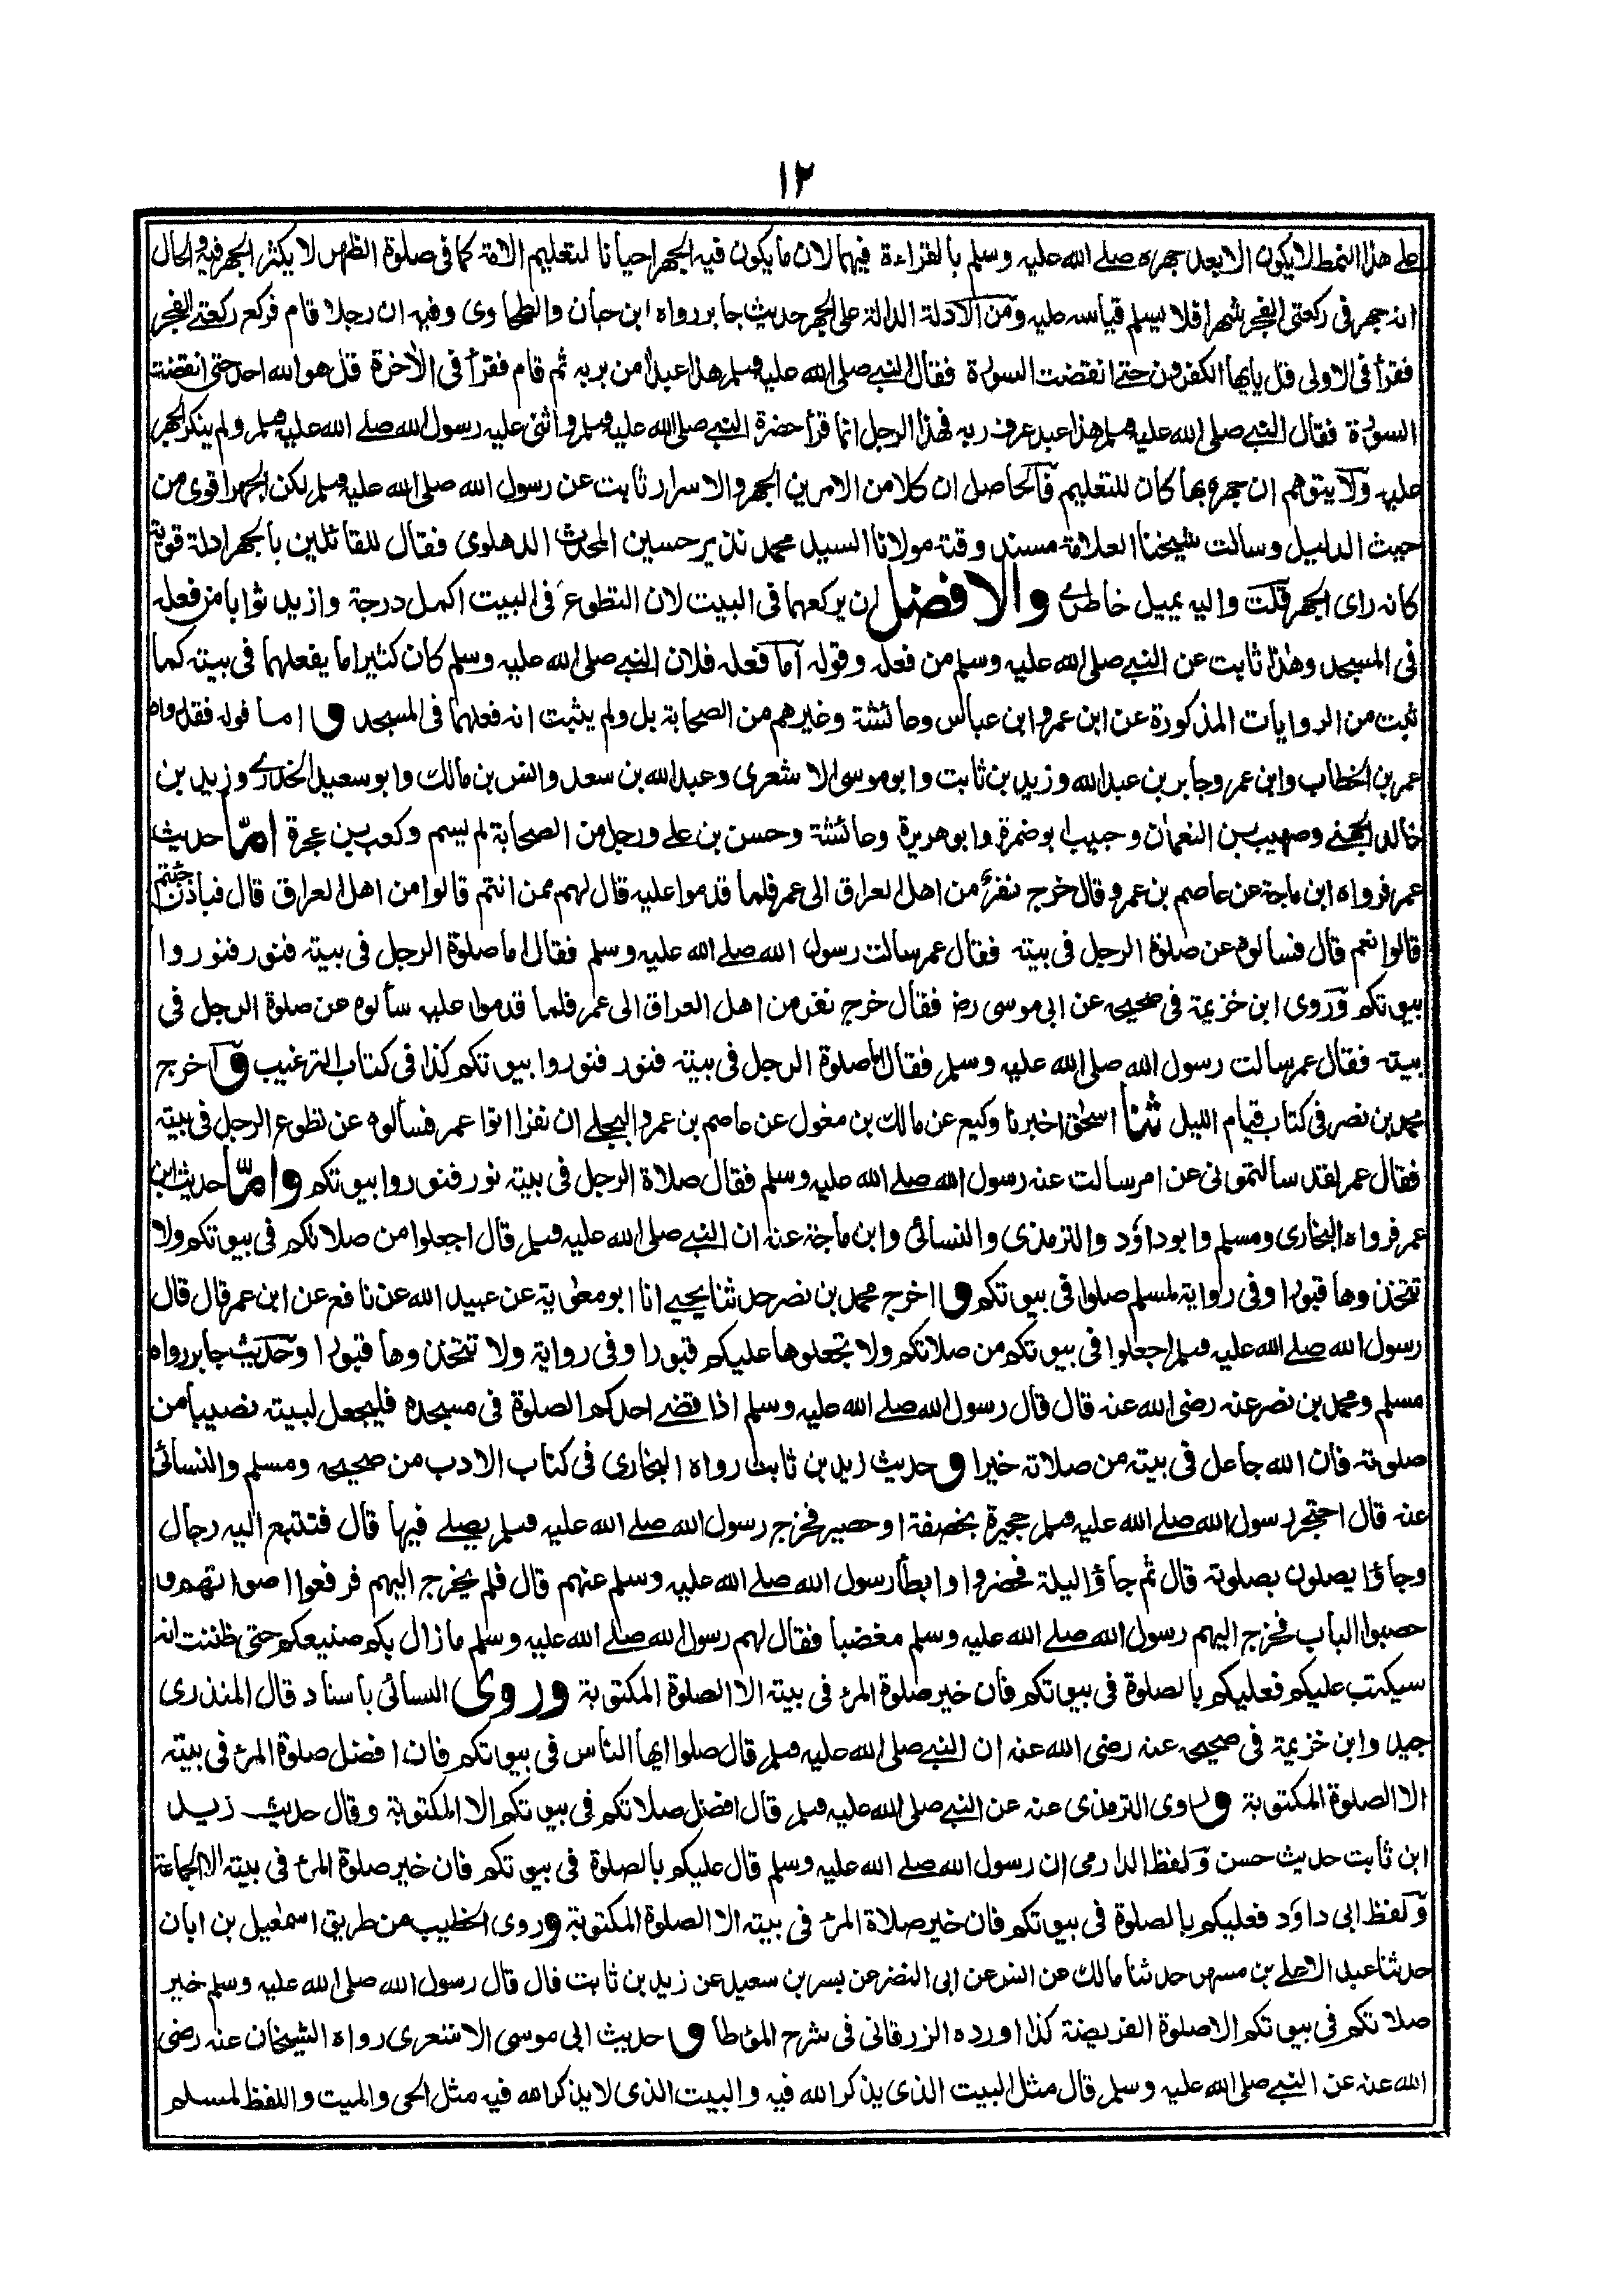 ١٢
على هذا النمط لايكون الا بعد جهره صلى الله عليه وسلم بالقراءة فيهما لان ما يكون فيه الجهر احيانا لتعليم الامة كما فى صلوة الظهر لا يكثر الجهر فيه والحال
انه جهر فى ركعتى الفجر شهرا فلا يسلم قياسه عليه ومن الادلة الدالة على الجهر حديث جابر رواه ابن حبان والطحاوى وفيه ان رجلا قام فركع ركعتى الفجر
فقرأ فى الاولى قل يايها الكفرون حتى انقضت السورة فقال النبى صلى الله عليه وسلم هذا عبد امن بربه ثم قام فقرأ فى الأخرة قل هو الله احد حتى انقضت
السورة فقال النبى صلى الله عليه وسلم هذا عبد عرف ربه فهذا الرجل انما قرأ حضرة النبى صلى الله عليه وسلم واثنى عليه رسول الله صلى الله عليه وسلم ولم ينكر الجهر
عليه ولا يتوهم ان جهره بها كان للتعليم فالحاصل ان كلا من الامرين الجهر والاسرار ثابت عن رسول الله صلى الله عليه وسلم لكن الجهر اقوى من
حيث الدليل وسالت شيخنا العلامة مسند وقته مولانا السيد محمد نذير حسين المحدث الدهلوى فقال للقائلين بالجهر ادلة قوية
كانه راى الجهر قلت واليه يميل خاطرى والافضل ان يركعهما فى البيت لان التطوع فى البيت اكمل درجة وازيد ثوابا من فعله
فى المسجد وهذا ثابت عن النبى صلى الله عليه وسلم من فعله وقوله اما فعله فلان النبى صلى الله عليه وسلم كان كثيرا ما يفعلهما فى بيته كما
ثبت من الروايات المذكورة عن ابن عمر وابن عباس وعائشة وغيرهم من الصحابة بل ولم يثبت انه فعلهما فى المسجد واما قوله فقد رواه
عمر بن الخطاب وابن عمر وجابر بن عبد الله وزيد بن ثابت وابو موسى الاشعرى وعبد الله بن سعد وانس بن مالك وابو سعيد الخدرى وزيد بن
خالد الجهنى وصهيب بن النعمان وحبيب ابو ضمرة وابو هريرة وعائشة وحسن بن على ورجل من الصحابة لم يسم وكعب بن عجرة امّا حديث
عمر فرواه ابن ماجة عن عاصم بن عمرو قال خرج نفر من اهل العراق الى عمر فلما قدموا عليه قال لهم ممن انتم قالوا من اهل العراق قال فباذن جئتم
قالوا نعم قال فسالوه عن صلوة الرجل فى بيته فقال عمر سالت رسول الله صلى الله عليه وسلم فقال اما صلوة الرجل فى بيته فنور فنوروا
بيوتكم وروى ابن خزيمة فى صحيحه عن ابى موسى رض فقال خرج نفر من اهل العراق الى عمر فلما قدموا عليه سألوه عن صلوة الرجل فى
بيته فقال عمر سالت رسول الله صلى الله عليه وسلم فقال اما صلوة الرجل فى بيته فنور فنوروا بيوتكم كذا فى كتاب الترغيب واخرج
محمد بن نصر فى كتاب قيام الليل ثنا اسحٰق اخبرنا وكيع عن مالك بن مغول عن عاصم بن عمرو البجلى ان نفرا اتوا عمر فسألوه عن تطوع الرجل فى بيته
فقال عمر لقد سالتمونى عن امر سالت عنه رسول الله صلى الله عليه وسلم فقال صلاة الرجل فى بيته نور فنوروا بيوتكم وامّا حديث ابن
عمر فرواه البخارى ومسلم وابو داؤد والترمذى والنسائى وابن ماجة عنه ان النبى صلى الله عليه وسلم قال اجعلوا من صلاتكم فى بيوتكم ولا
تتخذوها قبورا وفى رواية لمسلم صلوا فى بيوتكم واخرج محمد بن نصر حدثنا يحيى انا ابو معٰوية عن عبيد الله عن نافع عن ابن عمر قال قال
رسول الله صلى الله عليه وسلم اجعلوا فى بيوتكم من صلاتكم ولا تجعلوها عليكم قبورا وفى رواية ولا تتخذوها قبورا وحديث جابر رواه
مسلم ومحمد بن نصر عنه رضى الله عنه قال قال رسول الله صلى الله عليه وسلم اذا قضى احدكم الصلوة فى مسجده فليجعل لبيته نصيبا من
صلوته فان الله جاعل فى بيته من صلاته خيرا وحديث زيد بن ثابت رواه البخارى فى كتاب الادب من صحيحه ومسلم والنسائى
عنه قال احتجر رسول الله صلى الله عليه وسلم حجيرة بخصفة او حصير فخرج رسول الله صلى الله عليه وسلم يصلى فيها قال فتتبع اليه رجال
وجاؤا يصلون بصلوته قال ثم جاؤا ليلة فحضروا وابطأ رسول الله صلى الله عليه وسلم عنهم قال فلم يخرج اليهم فرفعوا اصواتهم و
حصبوا الباب فخرج اليهم رسول الله صلى الله عليه وسلم مغضبا فقال لهم رسول الله صلى الله عليه وسلم ما زال بكم صنيعكم حتى ظننت انه
سيكتب عليكم فعليكم بالصلوة فى بيوتكم فان خير صلوة المرء فى بيته الا الصلوة المكتوبة وروى النسائى باسناد قال المنذرى
جيد وابن خزيمة فى صحيحه عنه رضى الله عنه ان النبى صلى الله عليه وسلم قال صلوا ايها الناس فى بيوتكم فان افضل صلوة المرء فى بيته
الا الصلوة المكتوبة وروى الترمذى عنه عن النبى صلى الله عليه وسلم قال افضل صلاتكم فى بيوتكم الا المكتوبة وقال حديث زيد
ابن ثابت حديث حسن ولفظ الدارمى ان رسول الله صلى الله عليه وسلم قال عليكم بالصلوة فى بيوتكم فان خير صلوة المرء فى بيته الا الجماعة
ولفظ ابى داؤد فعليكم بالصلوة فى بيوتكم فان خير صلاة المرء فى بيته الا الصلوة المكتوبة وروى الخطيب من طريق اسمٰعيل بن ابان
حدثنا عبد الاعلى بن مسهر حدثنا مالك عن انس عن ابى النضر عن بسر بن سعيد عن زيد بن ثابت قال قال رسول الله صلى الله عليه وسلم خير
صلاتكم فى بيوتكم الا صلوة الفريضة كذا اورده الزرقانى فى شرح المؤطا وحديث ابى موسى الاشعرى رواه الشيخان عنه رضى
الله عنه عن النبى صلى الله عليه وسلم قال مثل البيت الذى يذكر الله فيه والبيت الذى لا يذكر الله فيه مثل الحى والميت واللفظ لمسلم